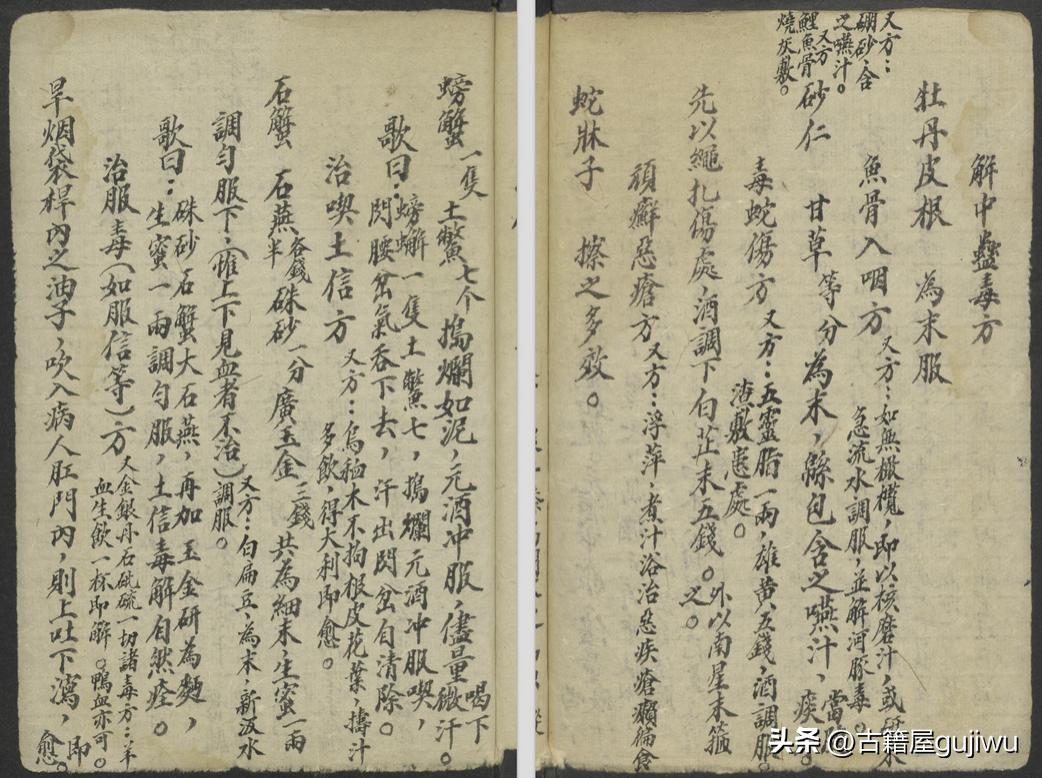 解中蠱毒方
牡丹皮根 為末服
魚骨入咽方
又方：如無橄欖，即以核磨汁，或
急流水調服，並解河豚毒。
又方：
硼砂，含
之嚥汁。
又方
鯉魚骨
燒灰敷。
砂仁 甘草 等分為末，綿包含之嚥汁，痰
毒蛇傷方
又方：五靈脂一兩，雄黃五錢，酒調服
渣敷患處。
先以繩扎傷處，酒調下白芷末五錢。外以南星末箍
之。
頑癬惡瘡方
又方：浮萍，煮汁浴治惡疾瘡癩偏
蛇牀子 擦之多效。
螃蟹一隻 土鱉七个 搗爛如泥，元酒冲服，儘量喝下
微汗。
歌曰：螃蟹一隻土鱉七，搗爛元酒冲服喫，
閃腰岔氣吞下去，汗出閃岔自清除。
治喫土信方
又方：烏桕木不拘根皮花葉，擣汁
多飲，得大利即愈。
石蟹 石燕各錢半 硃砂一分 廣玉金三錢 共為細末，生蜜一兩
調勻服下，（惟上下見血者不治）調服。
又方：白扁豆，為末，新汲水
歌曰：硃砂石蟹大石燕，再加玉金研為麵，
生蜜一兩調勻服，土信毒解自然痊。
治服毒（如服信等）方
又金銀丹石砒硫一切諸毒方：羊
血生飲一杯即解。鴨血亦可。
旱烟袋桿內之油子，吹入病人肛門內，則上吐下瀉，即
愈。
头条 @古籍屋gujiwu